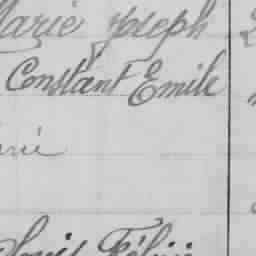 Marie Joseph
Constant Emile
Louis Félix